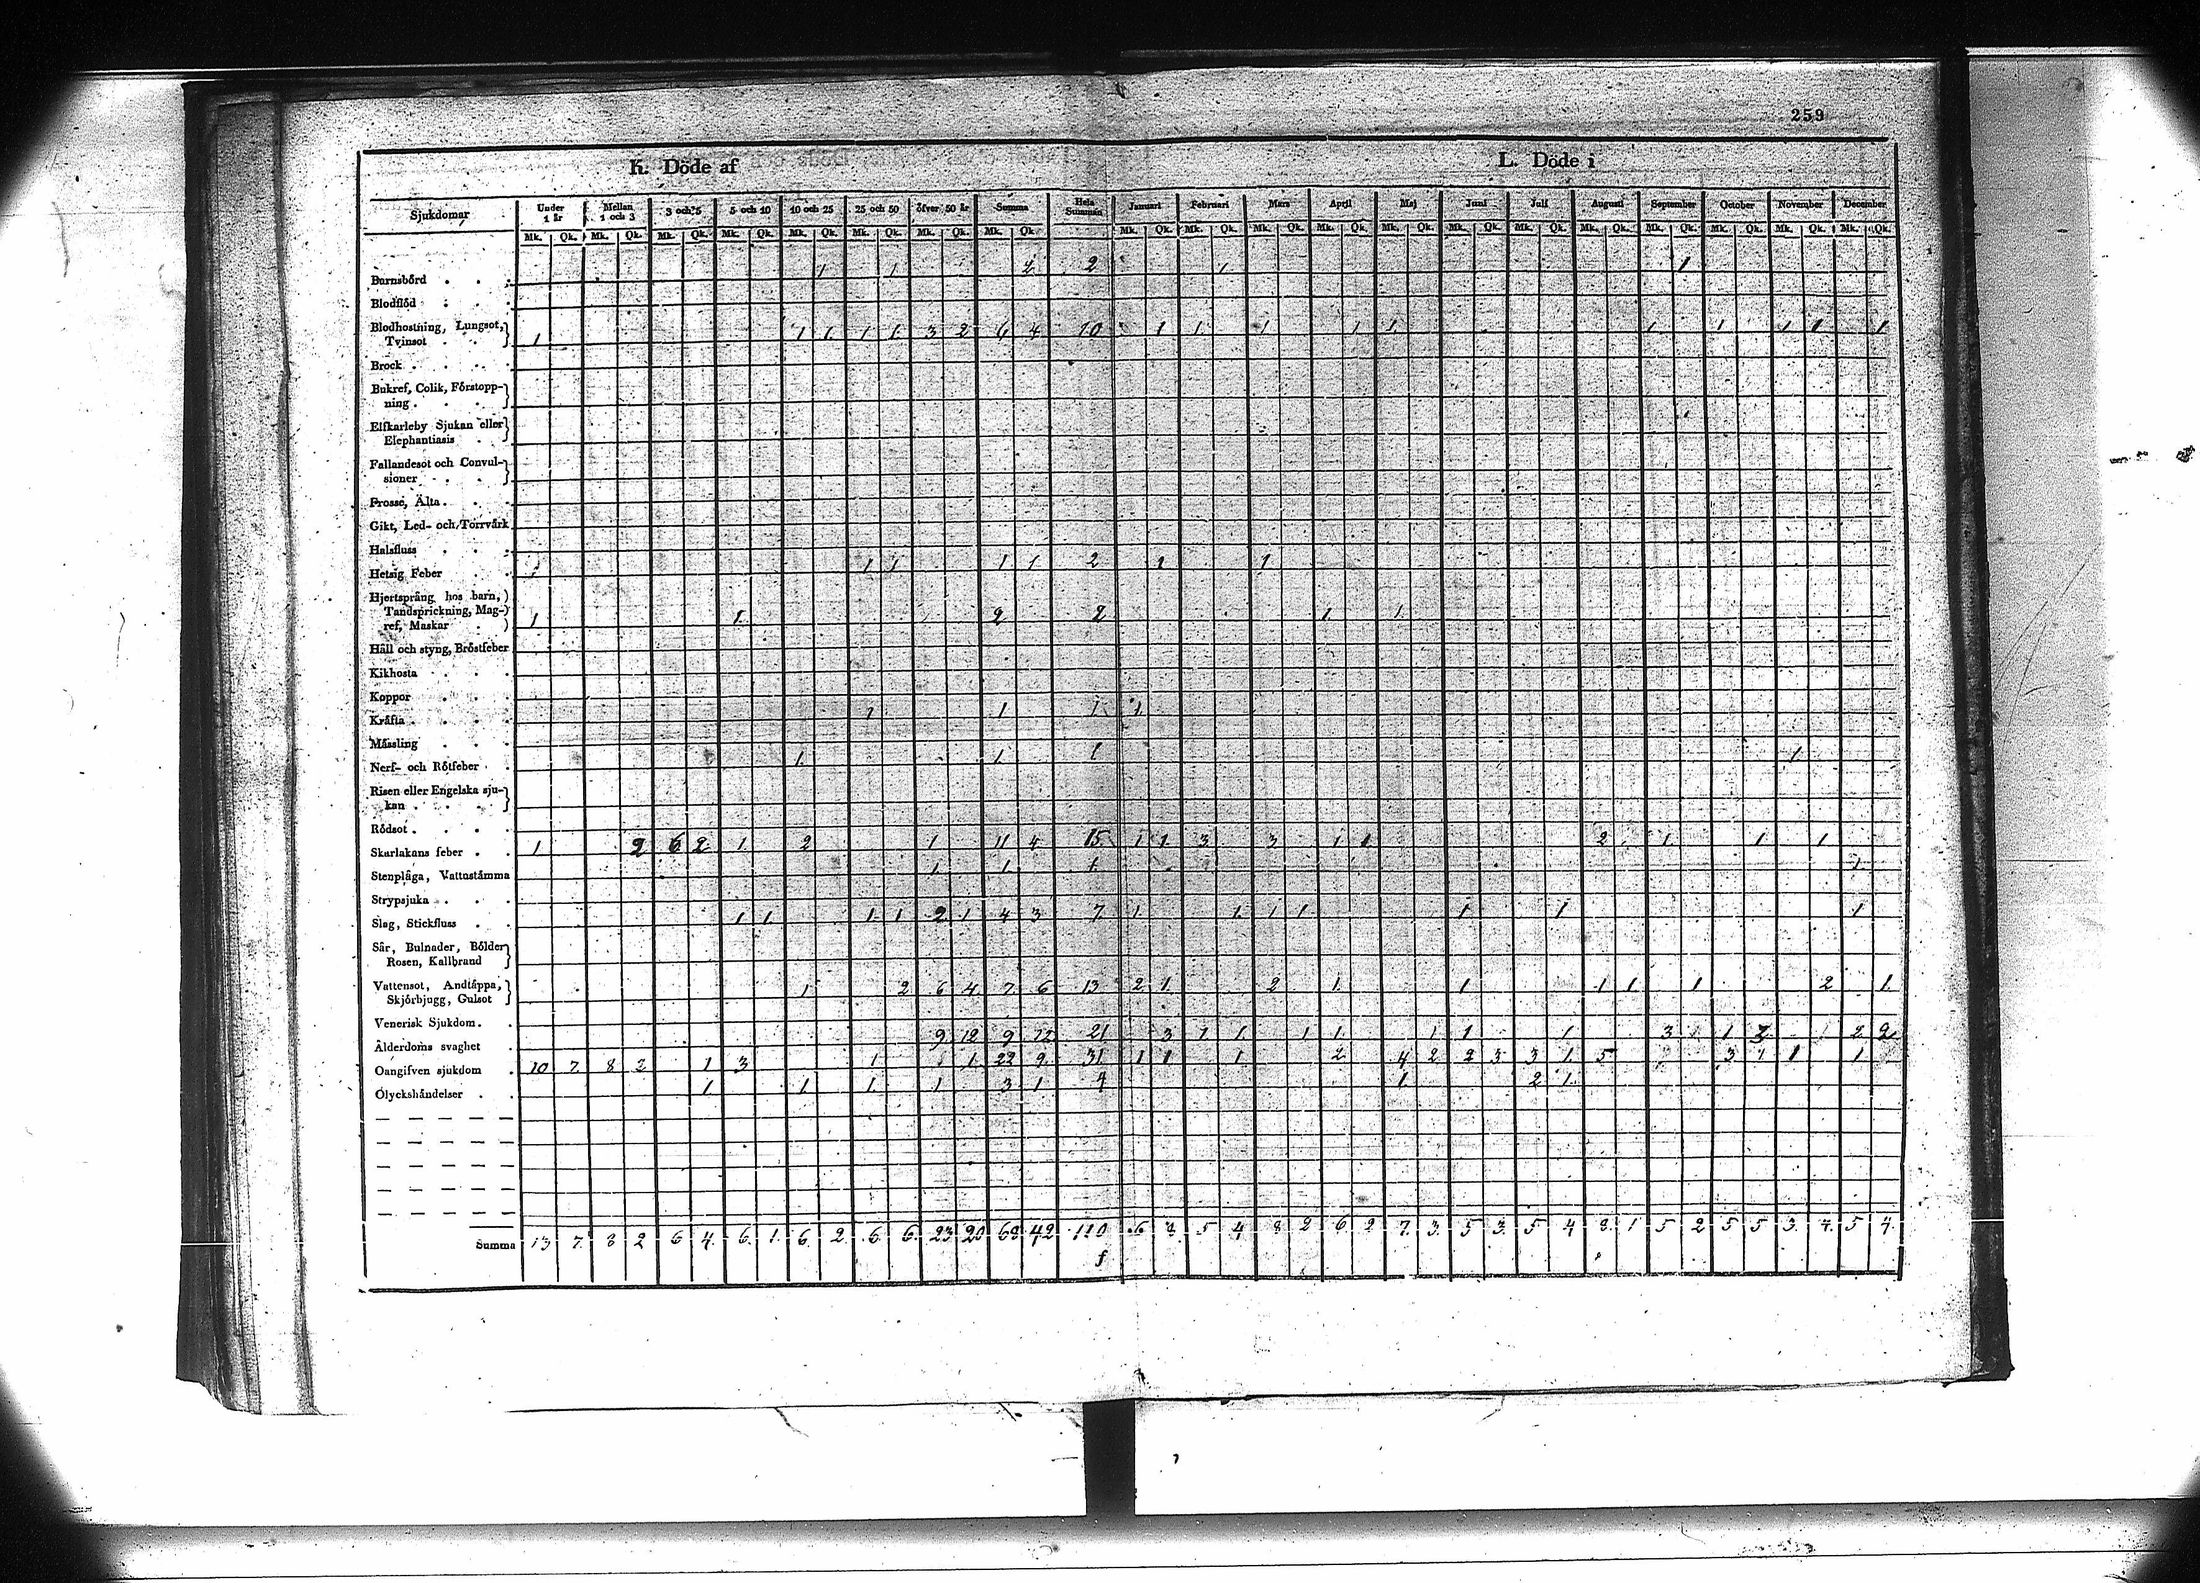 259
K. Döde af L. Döde i
Sjukdomar Under 1 år Mellan 1 och 3 3 och 5 5 och 10 10 och 25 25 och 50 öfver 50 år Summa Hela Summan Januari Februari Mars April Maj Juni Juli Augusti September October November December
Mk. Qk. Mk. Qk. Mk. Qk. Mk. Qk. Mk. Qk. Mk. Qk. Mk. Qk. Mk. Qk. Mk. Qk. Mk. Qk. Mk. Qk. Mk. Qk. Mk. Qk. Mk. Qk. Mk. Qk. Mk. Qk. Mk. Qk. Mk. Qk. Mk. Qk. Mk. Qk.
Barnsbörd 1 1 2 2 1 1
Blodflöd
Blodhostning, Lungsot,
Tvinsot 1 1 1 1 1 3 2 6 4 10 1 1 1 1 1 1 1 1 1 1
Brock
Bukref, Colik, Förstopp-
ning
Elfkarleby Sjukan eller
Elephantiasis
Fallandesot och Convul-
sioner
Frosse, Älta
Gikt, Led- och Torrvärk
Halsfluss
Hetsig Feber 1 1 1 1 2 1 1
Hjertsprång hos barn,
Tandsprickning, Mag-
ref, Maskar 1 1 2 2 1 1
Håll och styng, Bröstfeber
Kikhosta
Koppor
Kräfta 1 1 1 1
Mässling
Nerf- och Rötfeber 1 1 1 1
Risen eller Engelska sju-
kan
Rödsot
Skarlakans feber 1 2 6 2 1 2 1 11 4 15 1 1 3 3 1 1 2 1 1 1
Stenplåga, Vattnstämma 1 1 1 1
Strypsjuka
Slag, Stickfluss 1 1 1 1 2 1 4 3 7 1 1 1 1 1 1 1
Sår, Bulnader, Bölder
Rosen, Kallbrand
Vattensot, Andtäppa,
Skjörbjugg, Gulsot 1 2 6 4 7 6 13 2 1 2 1 1 1 1 1 2 1
Venerisk Sjukdom
Ålderdoms svaghet 9 12 9 12 21 3 1 1 1 1 1 1 1 3 1 1 2 2
Oangifven sjukdom 10 7 8 2 1 3 1 1 22 9 31 1 1 1 2 4 2 2 3 3 1 5 3 1 1 1
Olyckshändelser 1 1 1 1 3 1 4 1 2 1
Summa 13 7 8 2 6 4 6 1 6 2 6 6 23 20 68 42 110 6 5 4 8 2 6 2 7 3 5 3 5 4 8 1 5 2 5 5 3 4 5 4